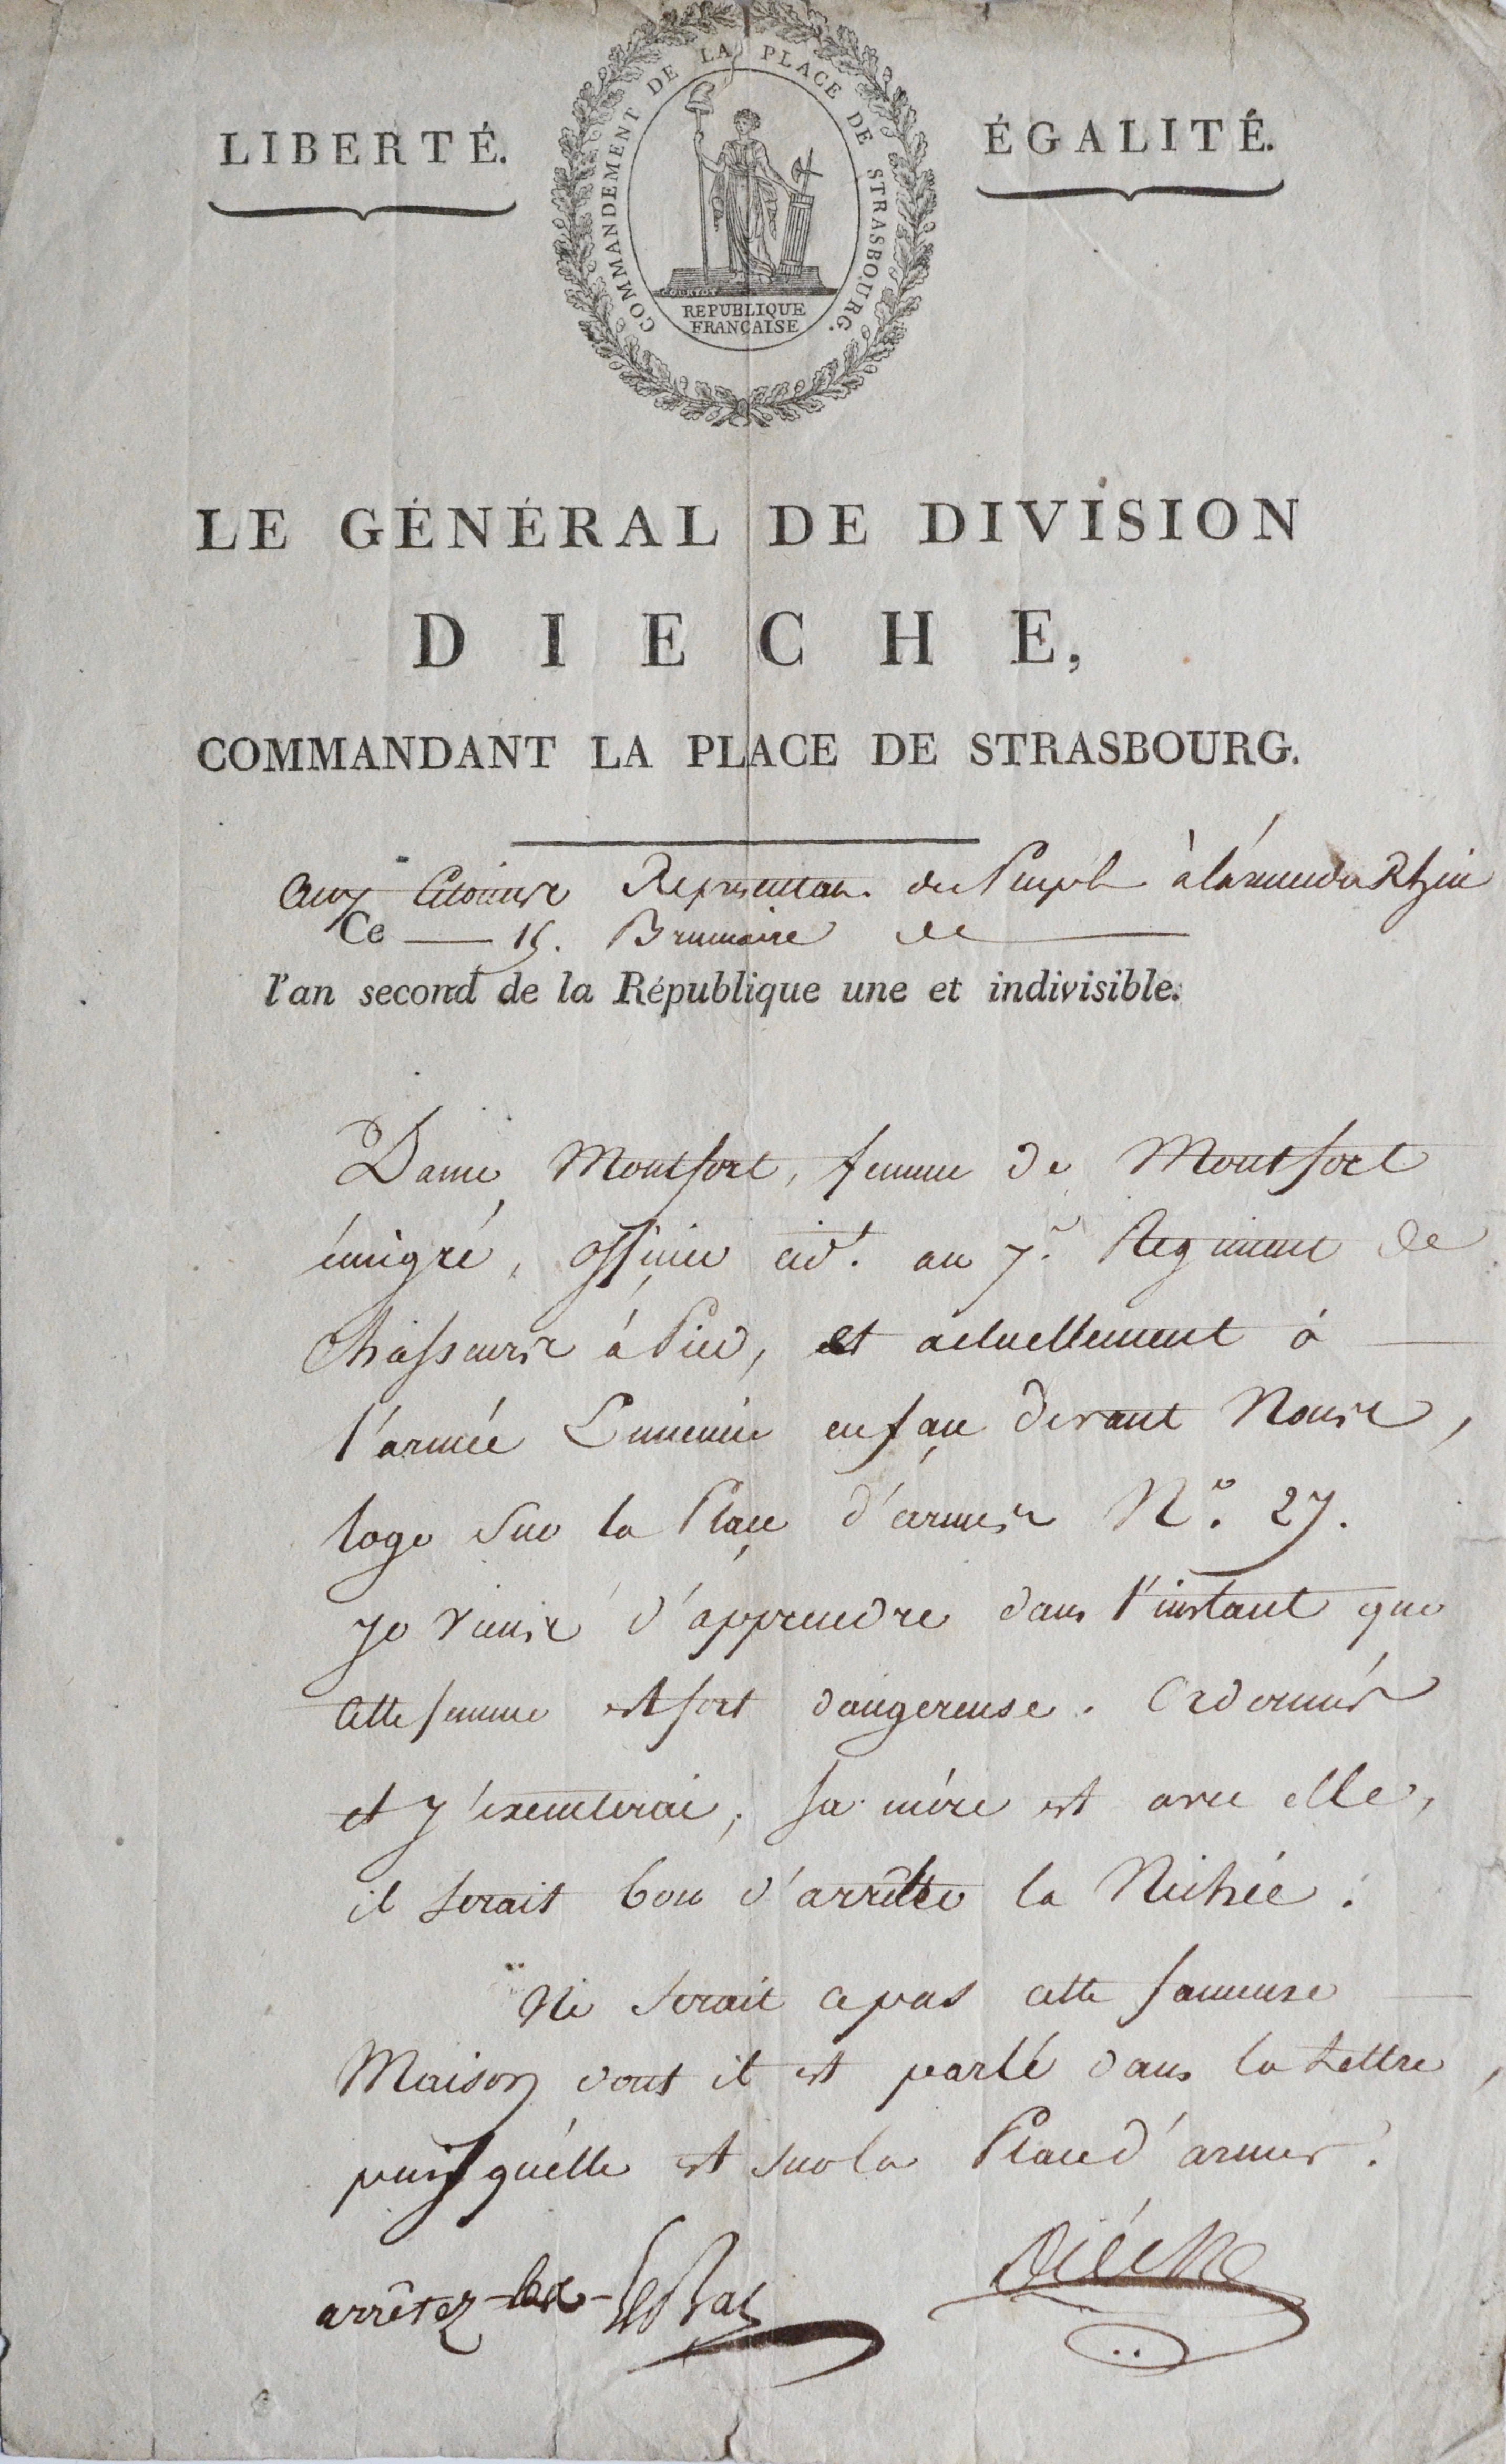 LIBERTÉ.
COMMANDEMENT DE LA PLACE DE STRASBOURG.
REPUBLIQUE
FRANÇAISE
ÉGALITÉ.
LE GÉNÉRAL DE DIVISION
DIECHE,
COMMANDANT LA PLACE DE STRASBOURG.
Aux Citoiens Representans du Peuple à l'armée du Rhin
Ce 15. Brumaire de
l'an second de la République une et indivisible.
Dame Montfort, femme de Montfort
émigré, officier cid. au 7e. Regiment de
Chasseurs à Pied, et actuellement à
l'armée Ennemie en face devant Nous,
loge sur la Place d'armes No. 27.
je viens d'apprendre dans l'instant que
cette femme est fort dangereuse. Ordonnés
et j'exécuterai, sa mère est avec elle,
il serait bon d'arrêter la Nichée.
Ne serait ce pas cette fameuse
Maison dont il est parlé dans la Lettre,
puisqu'elle est sur la Place d'armes.
arrêtez-les - St Just
Diéche